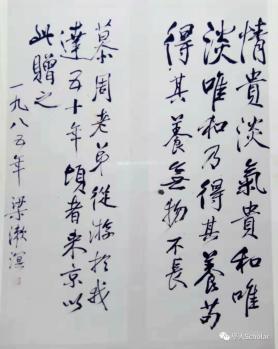 情貴淡氣貴和唯
淡唯和乃得其養苟
得其養無物不長
慕周老弟從游於我
達五十年頃者来京以
此贈之
一九八五年 梁漱溟
华大Scholar